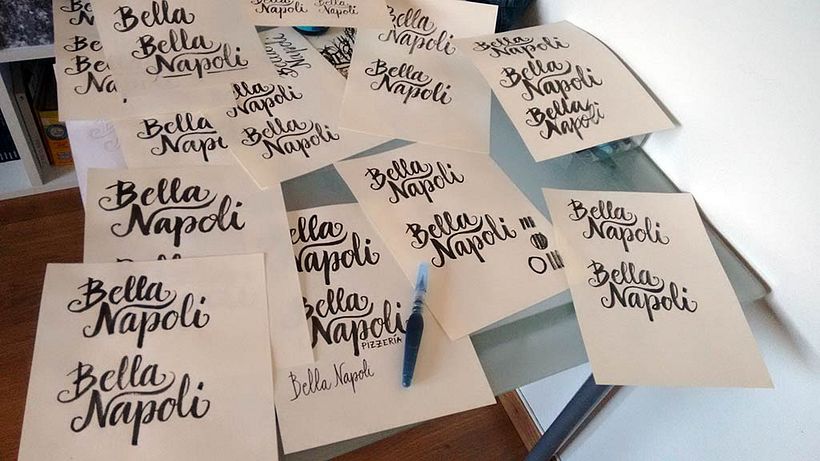 Bella
Bella
Napoli
Bella
Napoli
Bella
Napoli
Bella
Napoli
Bella
Napoli
Bella
Napoli
Bella
Napoli
Bella
Napoli
Bella
Napoli
Bella
Napoli
Bella
Napoli
Bella
Napoli
Bella
Napoli
Bella
Napoli
Bella
Napoli
PIZZERÍA
Bella Napoli
Bella
Napoli
Bella
Napoli
Bella
Napoli
Bella
Napoli